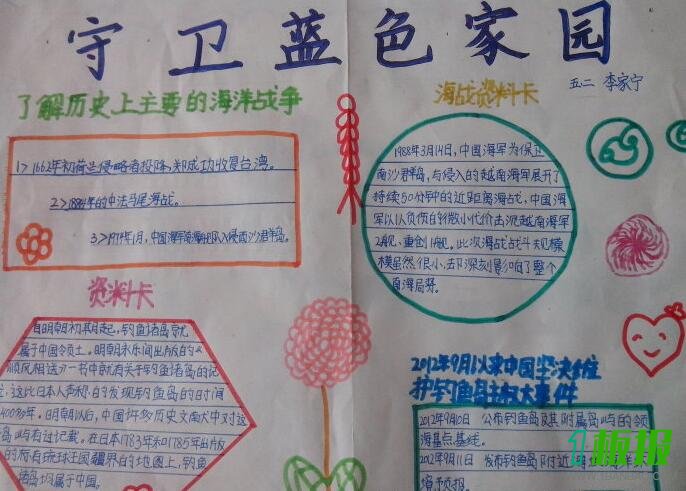 守卫蓝色家园
五二 李家宁
了解历史上主要的海洋战争
1> 1662年初荷兰侵略者投降,郑成功收复台湾。
2> 1884年的中法马尾海战。
3> 1974年1月,中国海军
侵西沙群岛。
海战资料卡
1988年3月14日,中国海军为保卫
南沙群岛,与侵入的越南海军展开了
持续50分钟的近距离海战,中国海
军以1人负伤的微小代价击沉越南海军
2舰、重创1舰,此次海战战斗规模
模虽然很小,却深刻影响了整个
南海局势。
资料卡
自明朝初期起,钓鱼诸岛就
属于中国领土。明朝永乐间出版的《
顺风相送》一书中就有关于钓鱼诸岛的记
,这比日本人声称的发现钓鱼岛的时间
400多年。明朝以后,中国许多历史文献中对这
岛屿有过记载。在日本1783年和1785年出版
的标有琉球王国疆界的地图上,钓鱼
诸岛均属于中国。
2012年9月以来中国坚决维
护钓鱼岛主权大事件
2012年9月10日 公布钓鱼岛及其附属岛屿的领
海基点基线。
2012年9月11日 发布钓鱼岛附近
预报。
板报